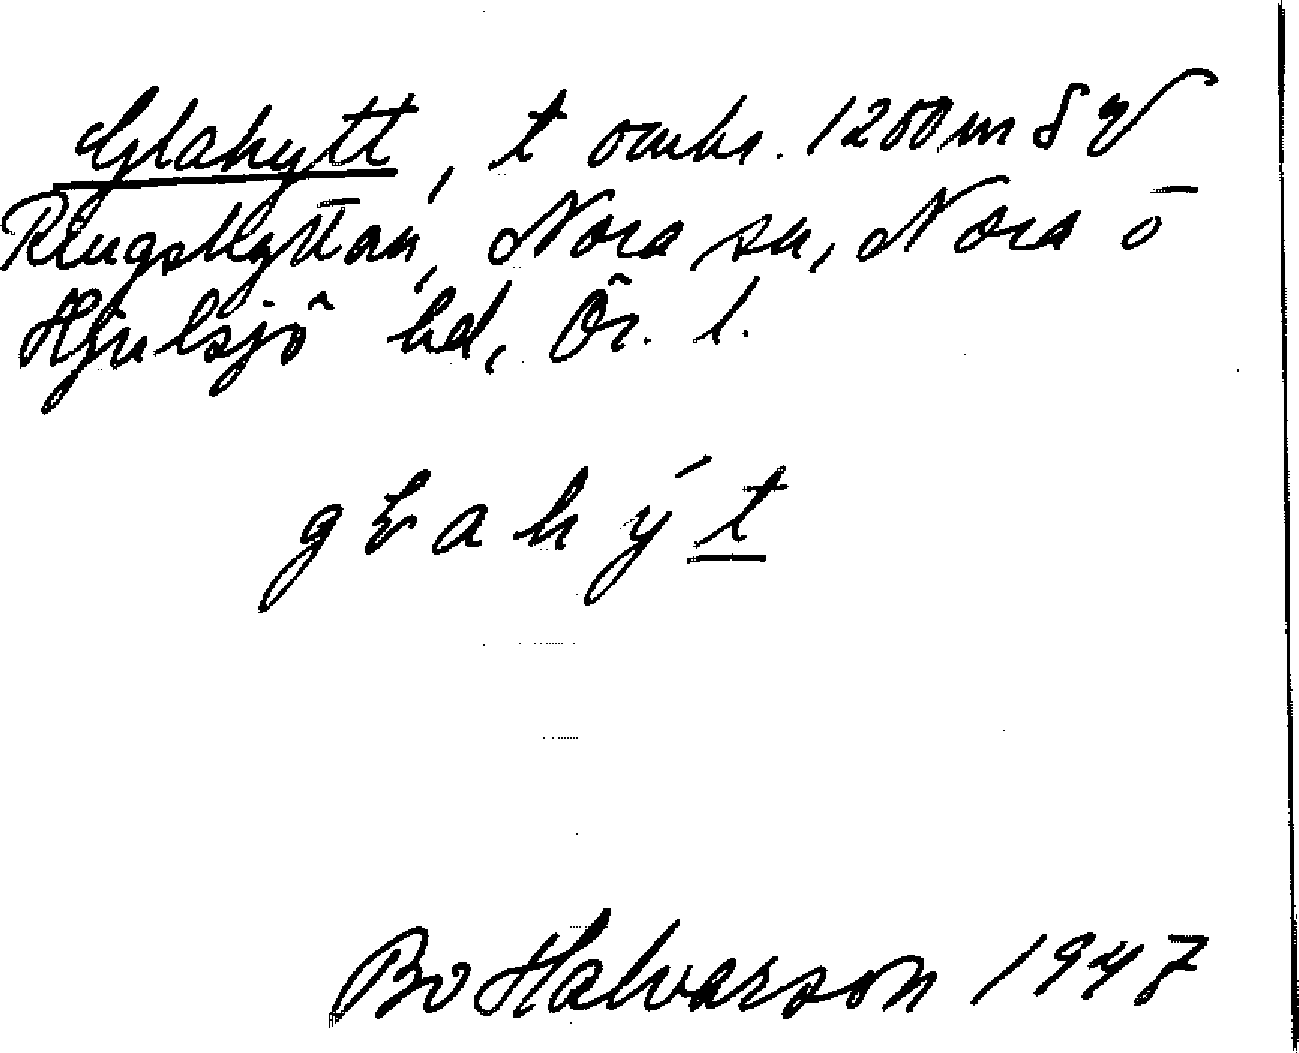 Glahytt, t omkr. 1200 m S V
Ringshyttan, Nora sn, Nora o
Hjulsjö hd, Ör. l.
g ł a h ý t
Bo Halvarson 1947